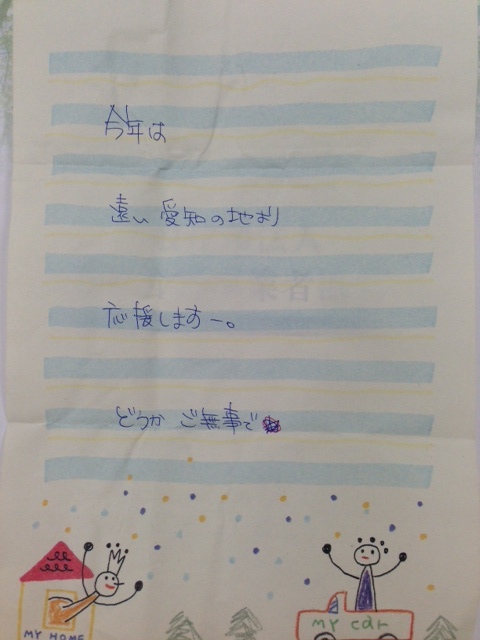 今年は
遠い愛知の地より
応援しますー。
どうかご無事で
MY HOME
MY CAR